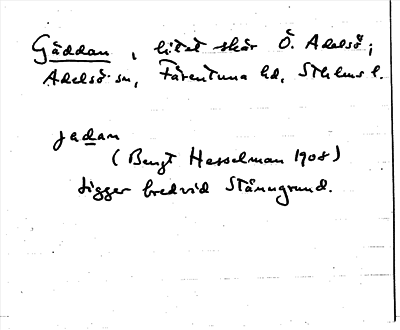 Gäddan, litet skär Ö. Adelsö;
Adelsö sn, Färentuna hd, Sthlms l.
jadan
(Bengt Hesselman 1908)
ligger bredvid Stänngrund.